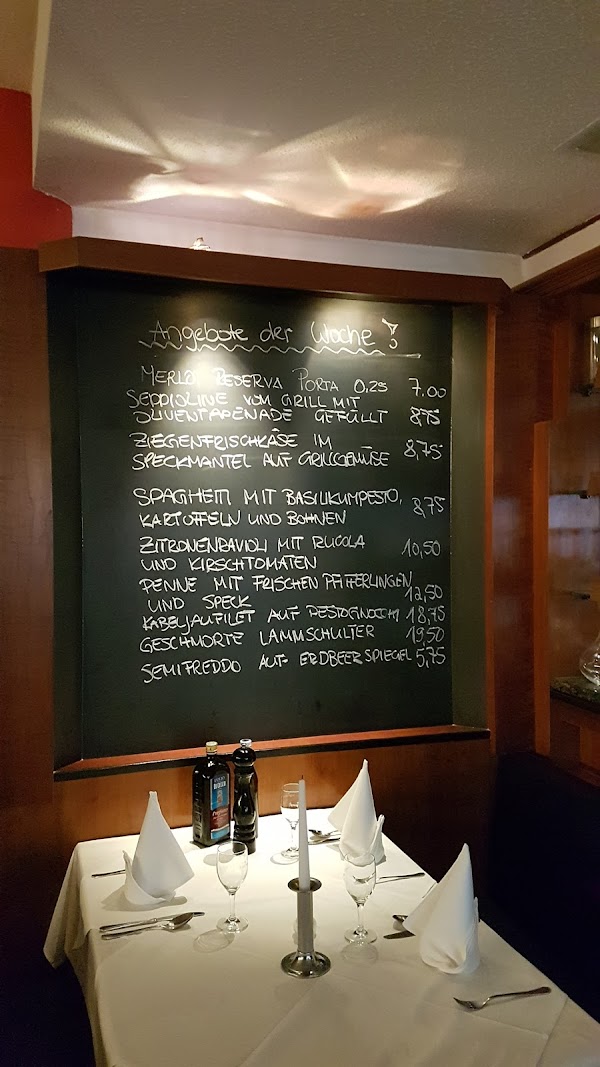 Angebote der Woche!
MERLOT RESERVA PORTA 0,25 7.00
SEPPIOLINE VOM GRILL MIT
OLIVENTAPENADE GEFÜLLT 8,75
ZIEGENFRISCHKÄSE IM
SPECKMANTEL AUF GRILLGEMÜSE 8,75
SPAGHETTI MIT BASILIKUMPESTO,
KARTOFFELN UND BOHNEN 8,75
ZITRONENRAVIOLI MIT RUCOLA 10,50
UND KIRSCHTOMATEN
PENNE MIT FRISCHEN PFIFFERLINGEN
UND SPECK 12,50
KABELJAUFILET AUF PESTOGNOCCHI 18,75
GESCHMORTE LAMMSCHULTER 19,50
SEMIFREDDO AUF ERDBEERSPIEGEL 5,75